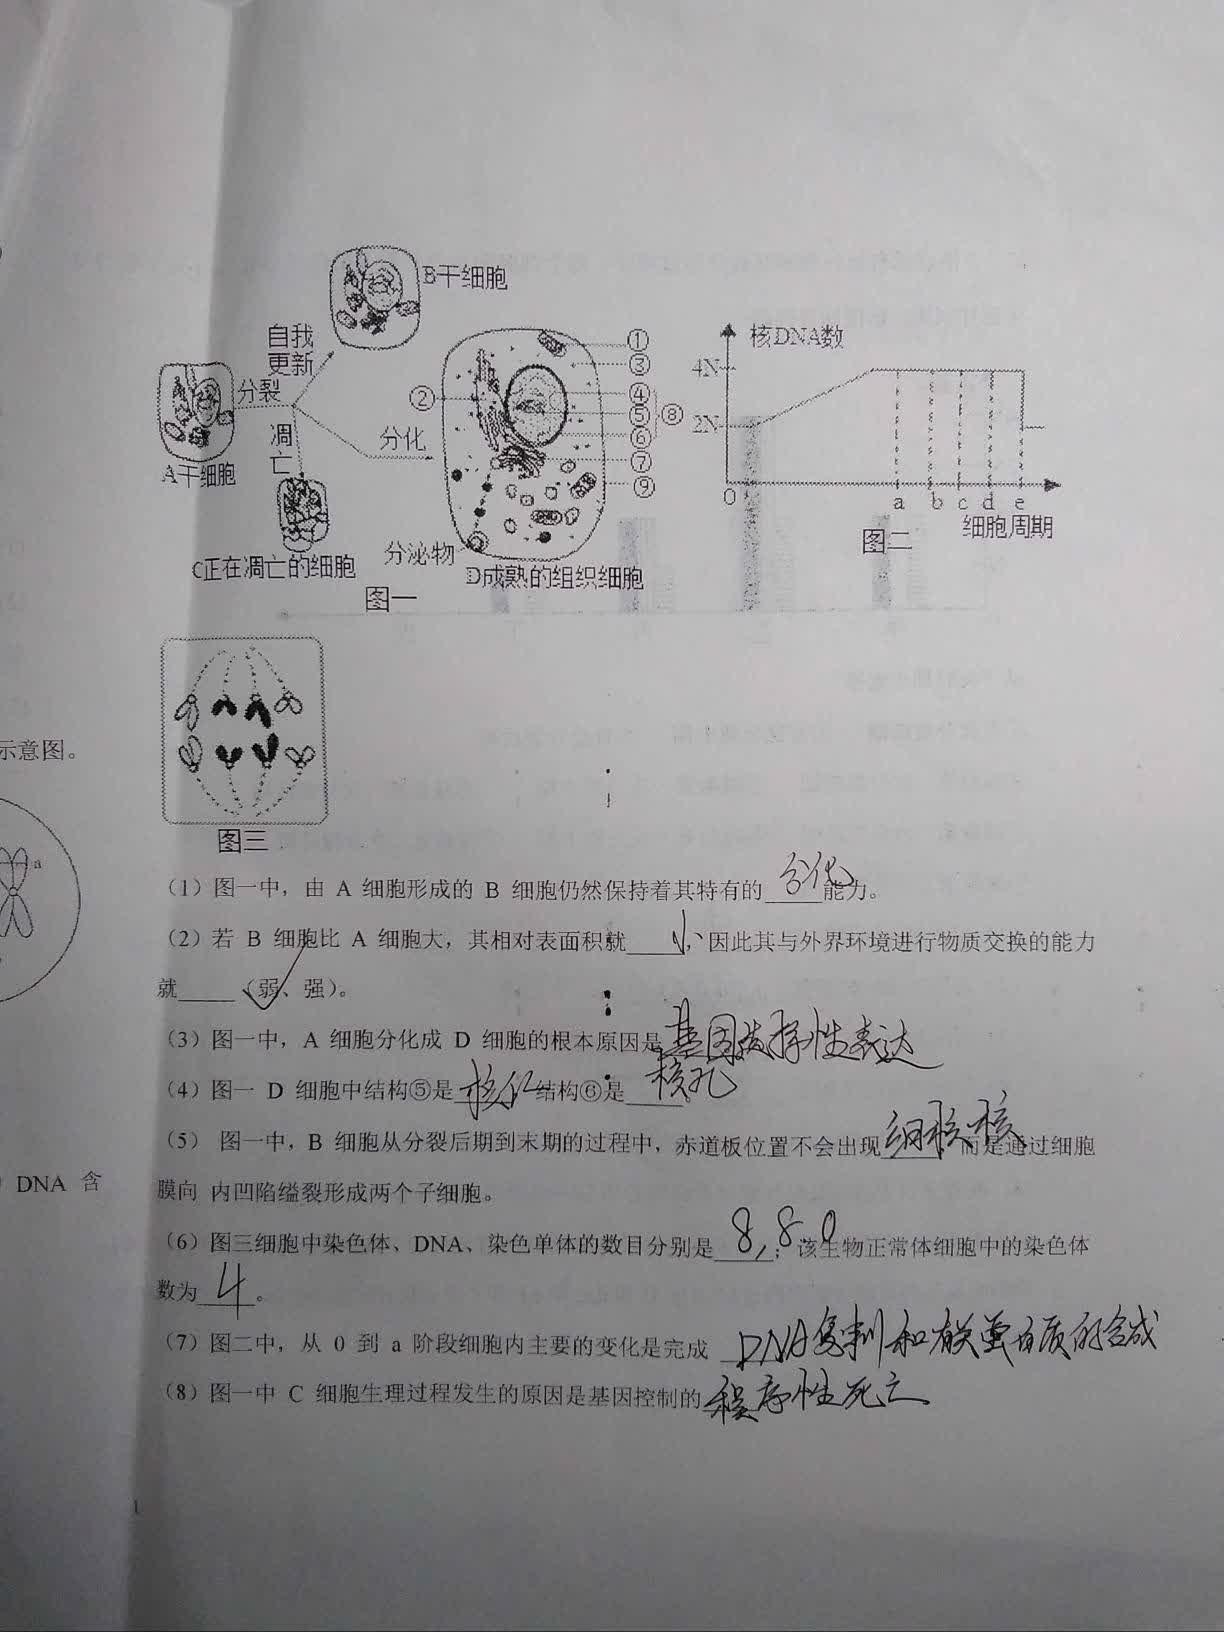 B干细胞
自我
更新
分裂
A干细胞
凋
亡
分化
C正在凋亡的细胞
分泌物
D成熟的组织细胞
图一
①
②
③
④
⑤
⑥
⑦
⑧
⑨
核DNA数
4N
2N
0 a b c d e
细胞周期
图二
图三
示意图。
a
DNA 含
(1)图一中，由 A 细胞形成的 B 细胞仍然保持着其特有的分化能力。
(2)若 B 细胞比 A 细胞大，其相对表面积就小，因此其与外界环境进行物质交换的能力
就_____（弱、强）。
(3)图一中，A 细胞分化成 D 细胞的根本原因是基因选择性表达
(4)图一 D 细胞中结构⑤是核仁结构⑥是核孔
(5) 图一中，B 细胞从分裂后期到末期的过程中，赤道板位置不会出现细核核，而是通过细胞
膜向 内凹陷缢裂形成两个子细胞。
(6)图三细胞中染色体、DNA、染色单体的数目分别是8,8 0；该生物正常体细胞中的染色体
数为4。
(7)图二中，从 0 到 a 阶段细胞内主要的变化是完成 DNA复制和有关蛋白质的合成
(8)图一中 C 细胞生理过程发生的原因是基因控制的程序性死亡
1